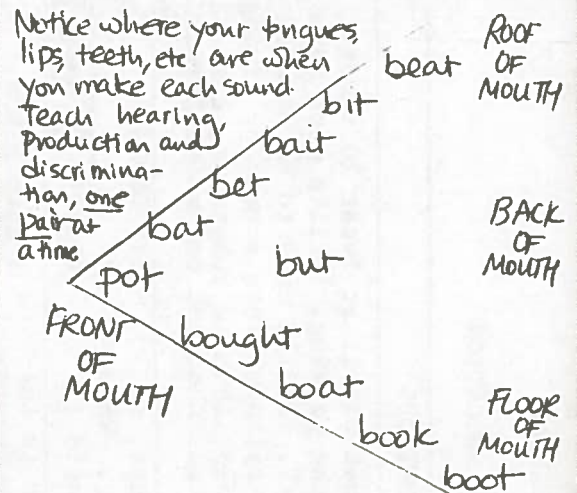 Notice where your tongues,
lips, teeth, etc are when
you make each sound.
Teach hearing,
Production and
discrimina-
tion, one
pair at
a time
beat
bit
bait
bet
bat
pot
but
bought
boat
book
boot
ROOF
OF
MOUTH
BACK
OF
MOUTH
FRONT
OF
MOUTH
FLOOR
OF
MOUTH